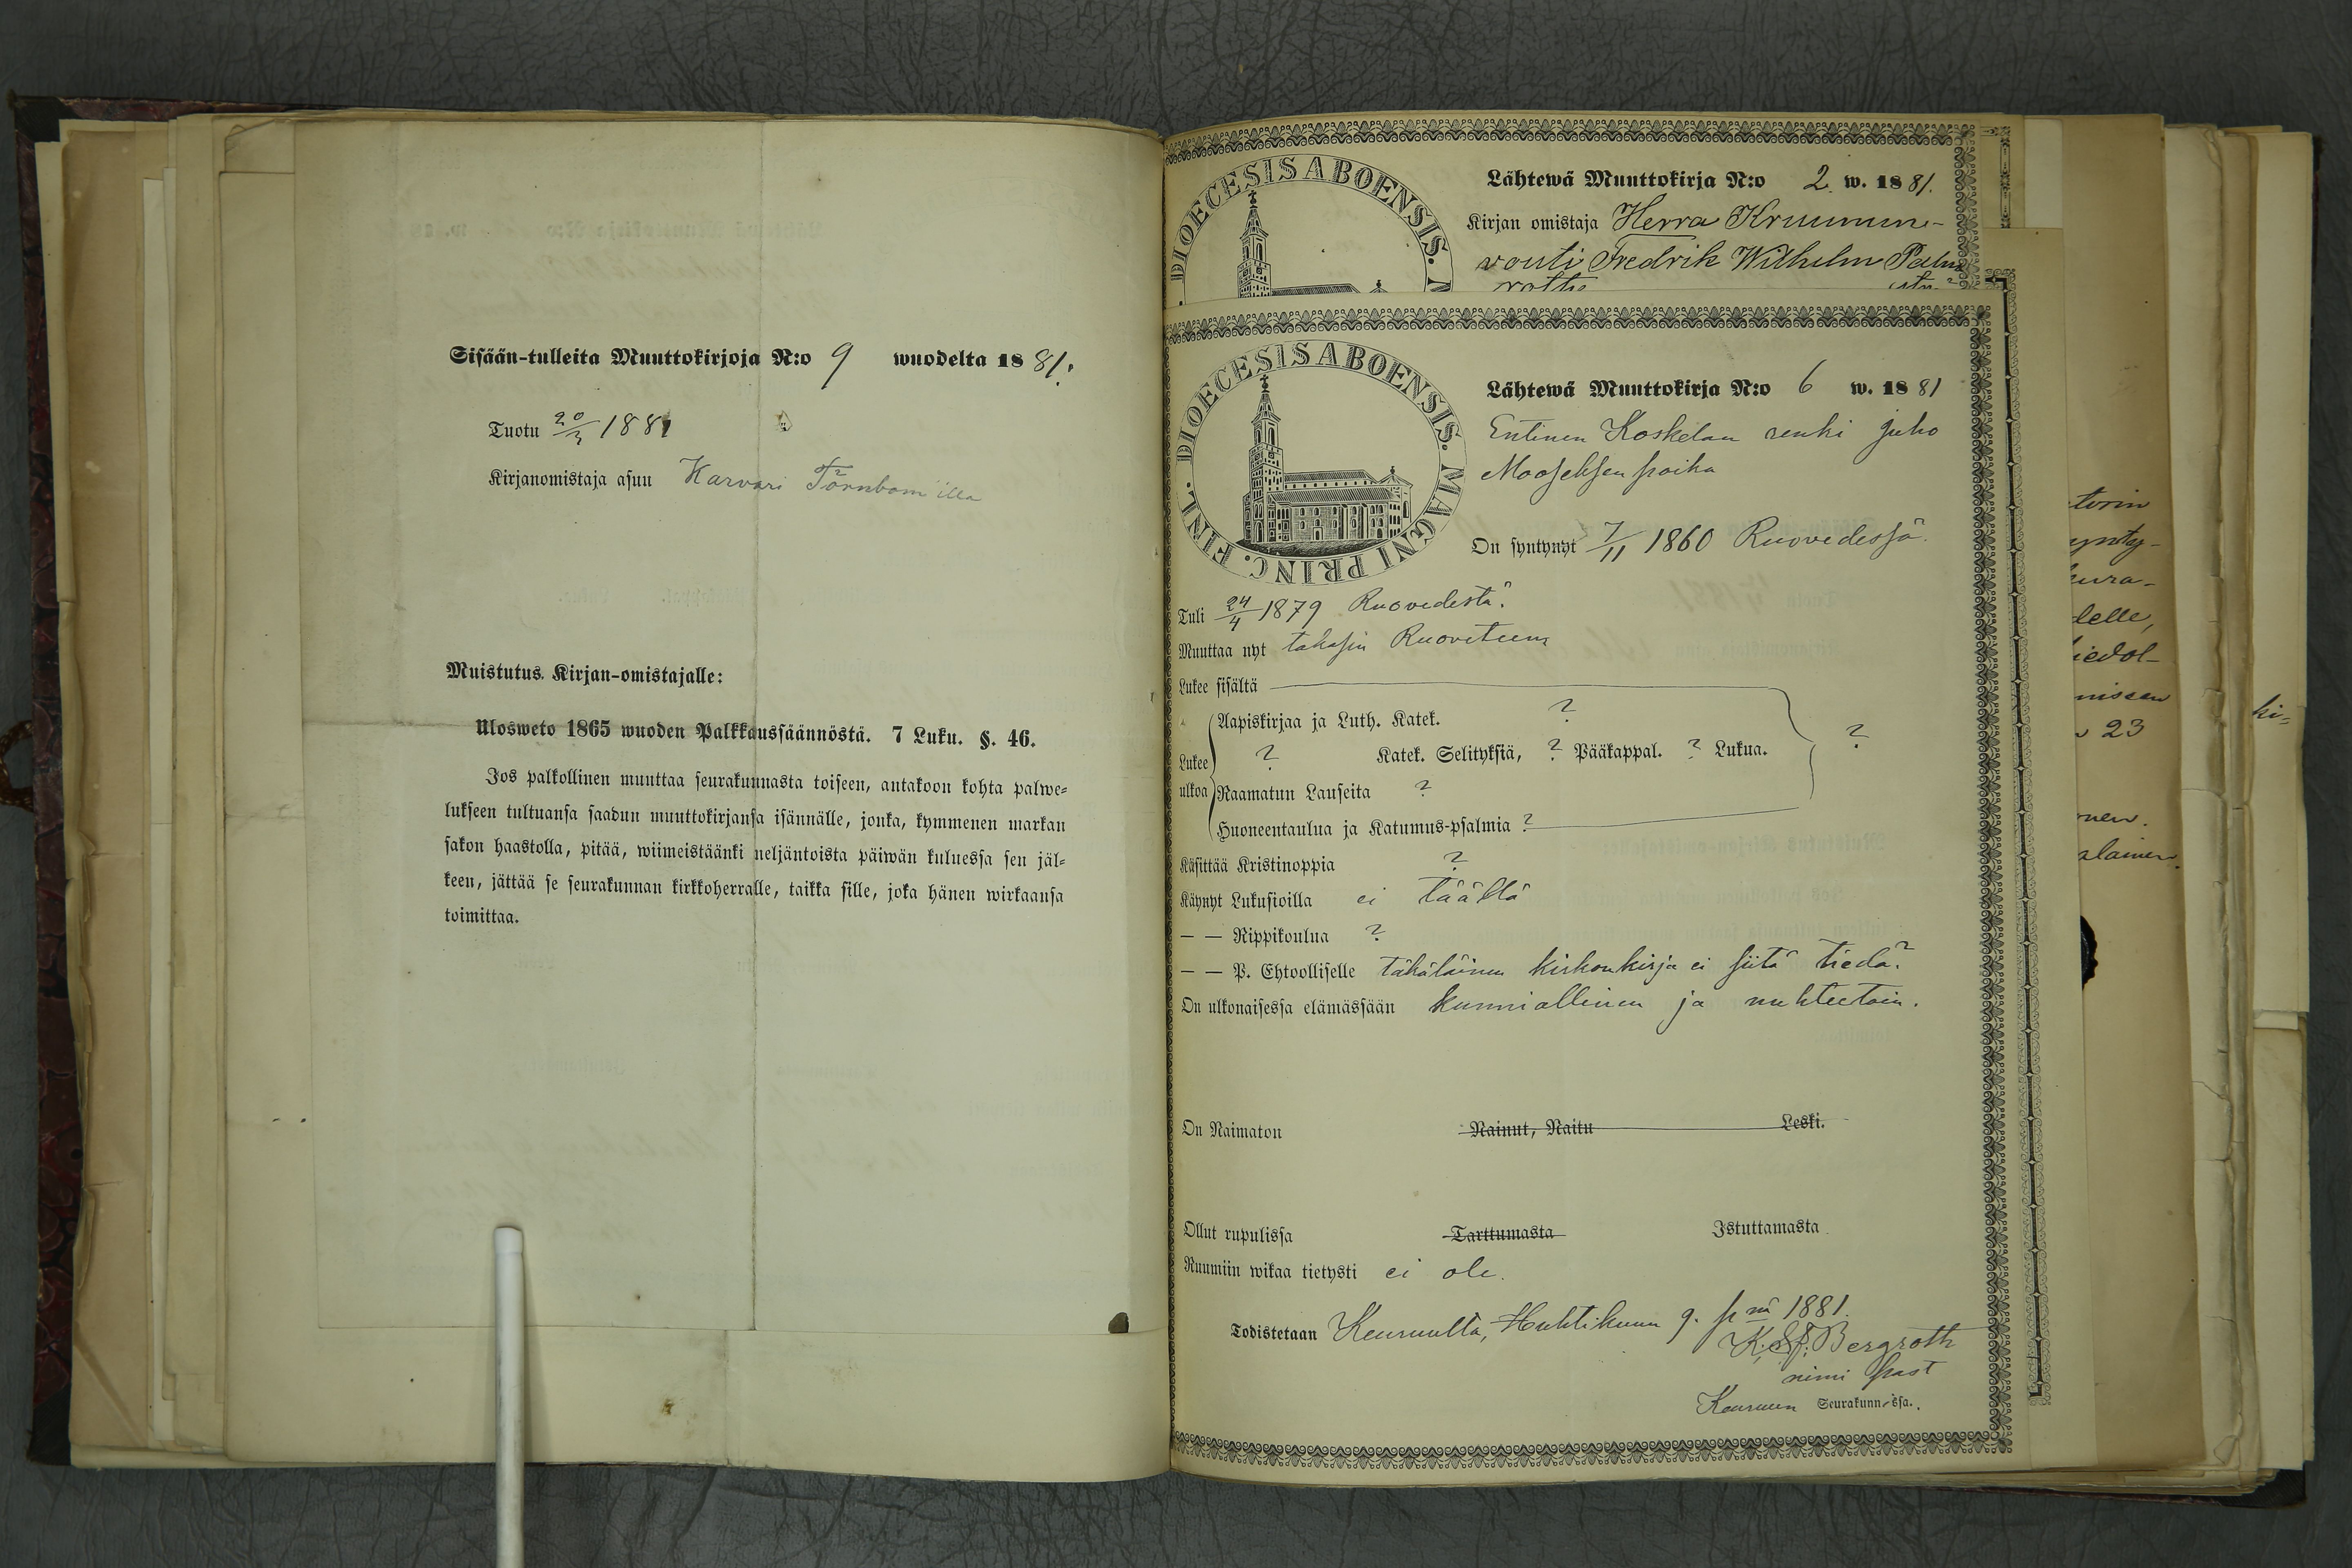 Sisään-tulleita Muuttokirjoja N:o 9 wuodelta 1881.
Tuotu 20/3 1881
Kirjanomistaja asuu Karvari Törnbom'illa
Muistutus Kirjan-omistajalle:
Ulosweto 1865 wuoden Palkkaussäännöstä. 7 Luku. §. 46.
Jos palkollinen muuttaa seurakunnasta toiseen, antakoon kohta palwe-
lukseen tultuansa saadun muuttokirjansa isännälle, jonka, kymmenen markan
sakon haastolla, pitää, wiimeistäänki neljäntoista päiwän kuluessa sen jäl-
keen, jättää se seurakunnan kirkkoherralle, taikka sille, joka hänen wirkaansa
toimittaa.
DIOECESIS ABOENSIS.
Lähtewä Muuttokirja N:o 2. w. 1881.
Kirjan omistaja Herra Kruunun-
vouti Fredrik Wilhelm Palm
DIOECESIS ABOENSIS. MAGNI PRINC. FINL.
Lähtewä Muuttokirja N:o 6 w. 1881
Entinen Koskelan renki Juho
Mooseksen poika
On syntynyt 7/11 1860 Ruovedessä.
Tuli 24/4 1879 Ruovedestä.
Muuttaa nyt takasin Ruoveteen
Lukee sisältä
Aapiskirjaa ja Luth. Katek. ?
Lukee ulkoa ? Katek. Selityksiä, ? Pääkappal. ? Lukua. ?
Raamatun Lauseita ?
Huoneentaulua ja Katumus-psalmia ?
Käsittää Kristinoppia ?
Käynyt Lukusioilla ei täällä
— — Rippikoulua ?
— — P. Ehtoolliselle täkäläinen kirkonkirja ei siitä tiedä?
On ulkonaisessa elämässään kunniallinen ja nuhteetoin.
On Naimaton Nainut, Naitu Leski.
Ollut rupulissa Tarttumasta Istuttamasta
Ruumiin wikaa tietysti ei ole.
Todistetaan Keuruulta, Huhtikuun 9. p nä 1881.
Bergroth
past
Keuruun Seurakunnissa.
torin
lelle,
iedot-
23
alainen.